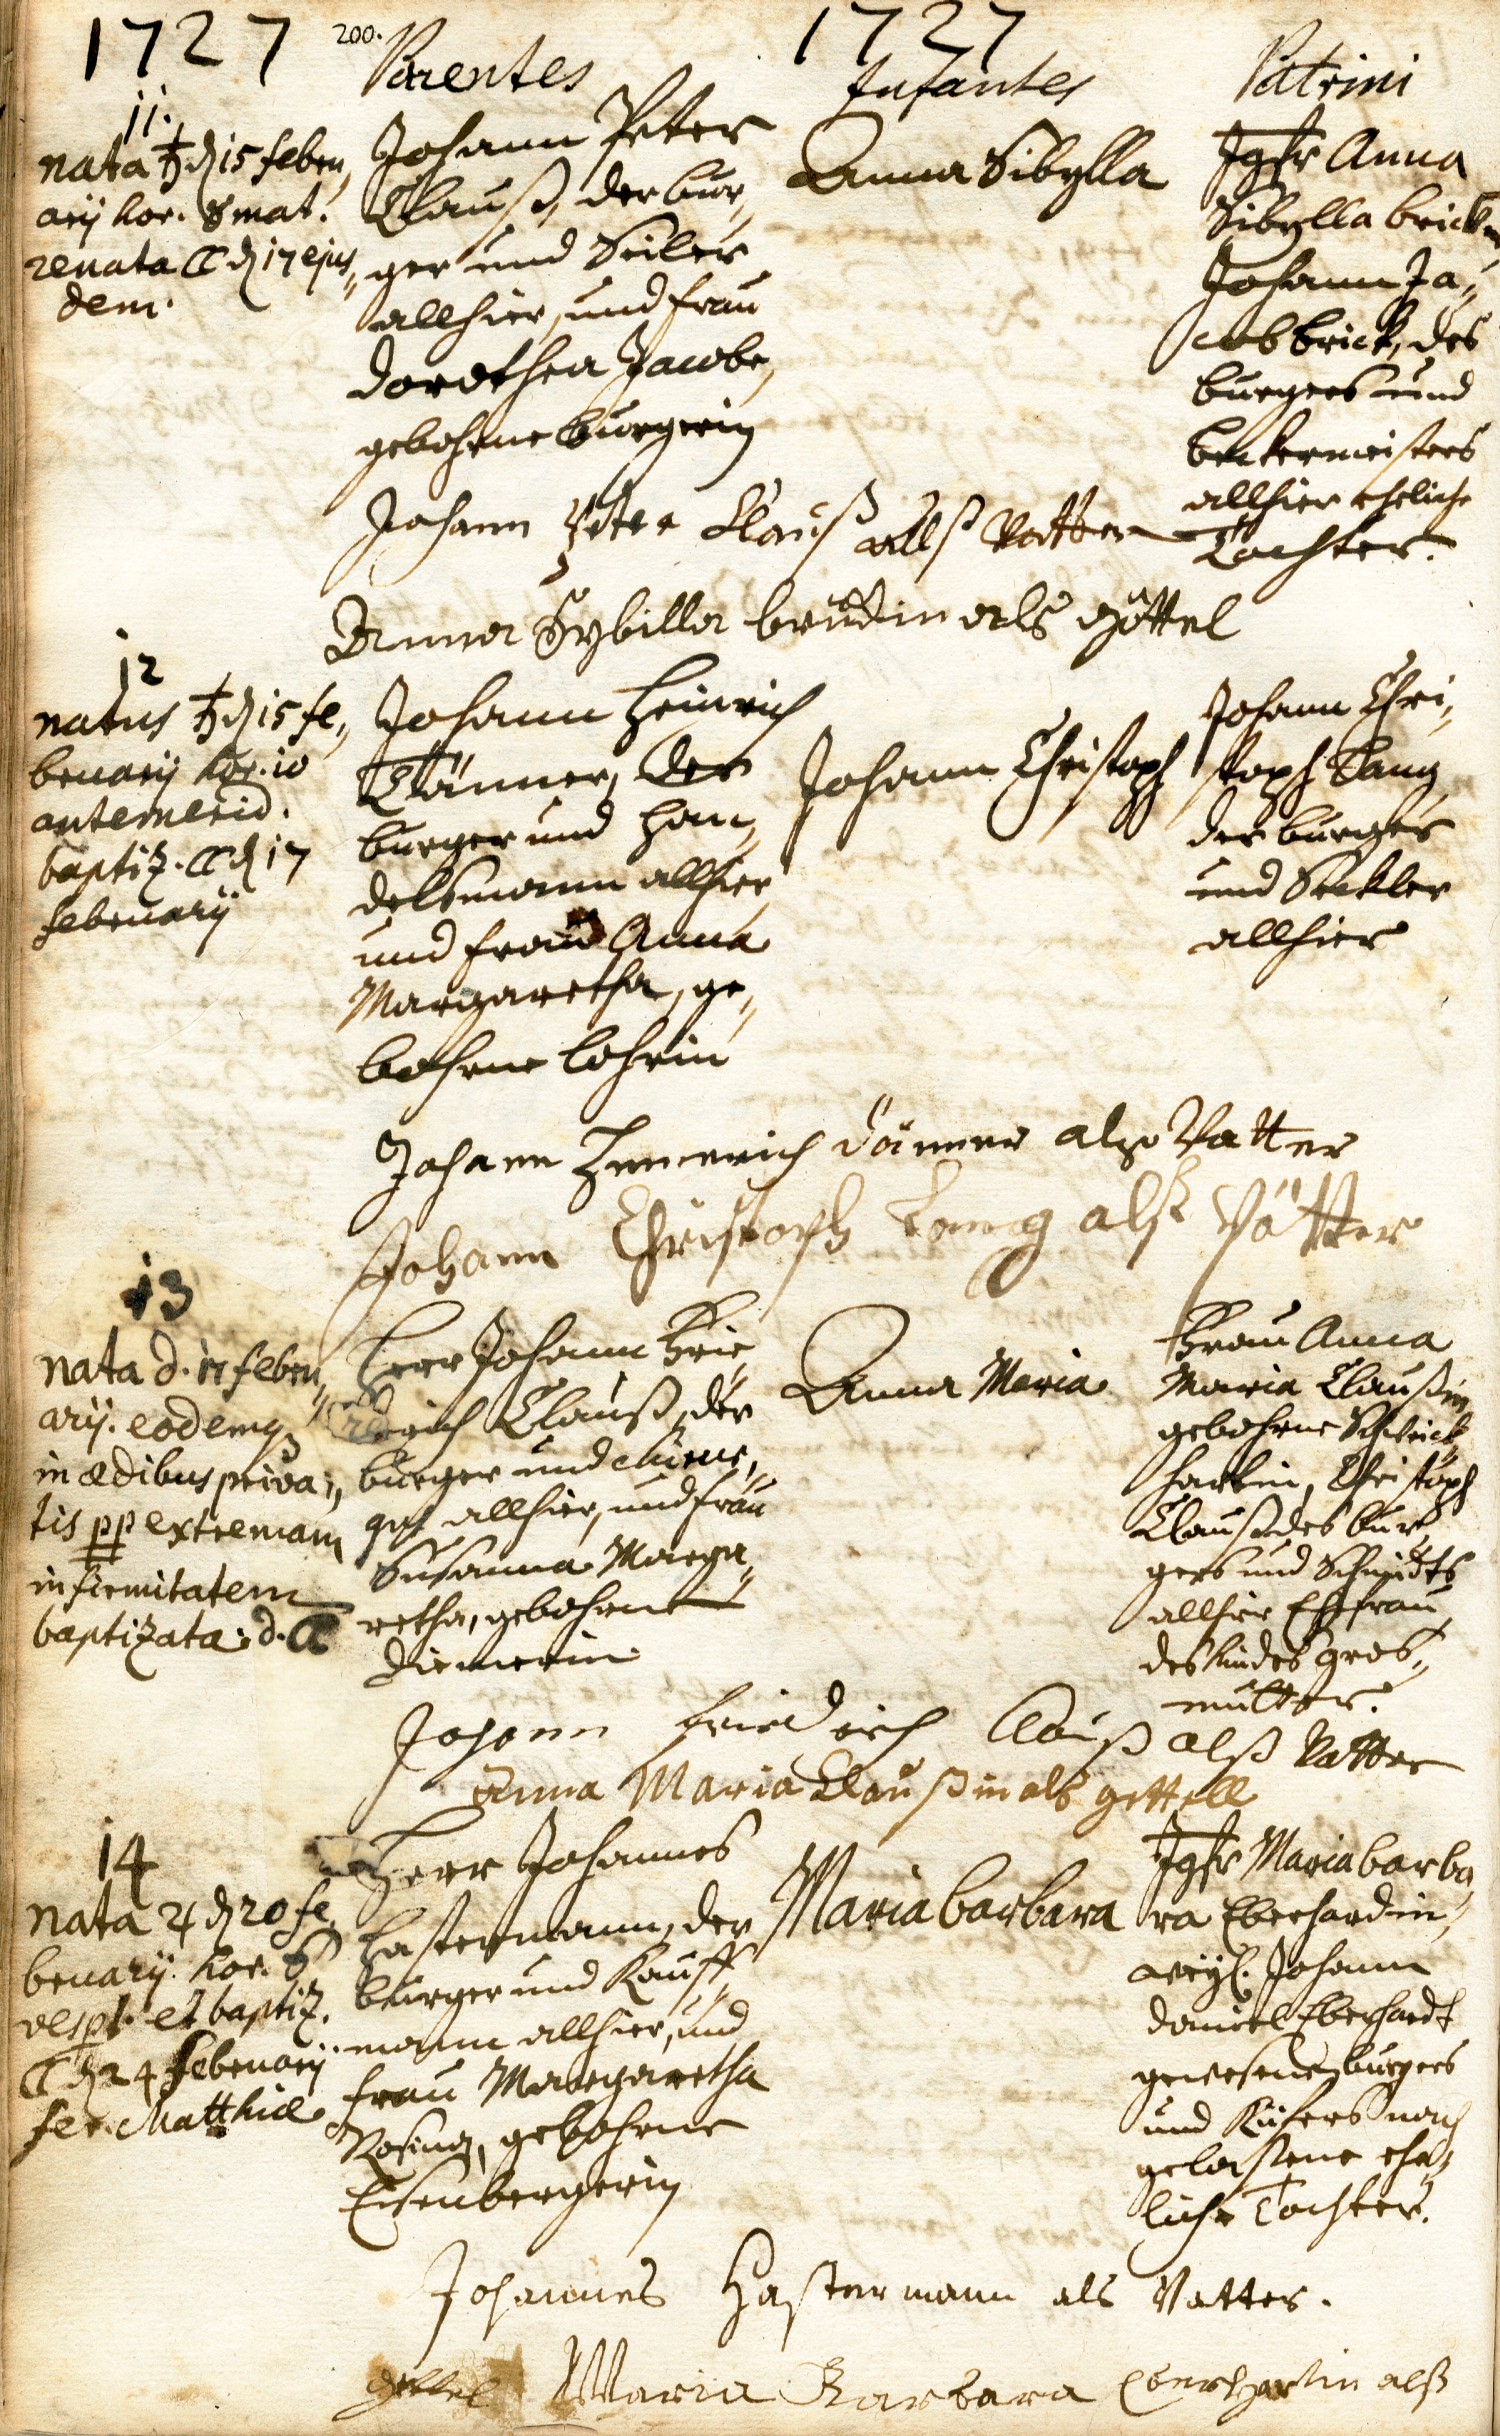 1727 200. 1727
Parentes Infantes Patrini
11.
nata ♄ d 15 febru„
arij hor. 8 mat.
renata ☾ d 17 ejus„
dem.
Johann Peter
Clauß, der bur„
ger und Seiler
allhier, und frau
Dorothea Jacobe,
gebohrne burgerin
Anna Sibylla
Jgfr Anna
Sibylla brickin
Johann Ja„
cob brick, des
burgers und
beckermeisters
allhier eheliche
Tochter.
Johann Peter Clauß alß Vatter
Anna Sybilla als göttel
12
natus ♄ d 15 fe„
bruarij hor. 10
antemerid.
baptiz. ☾ d 17
februarij
Johann Heinrich
Tänner, der
burger und han„
delsmann allhier
und frau Anna
Margaretha, ge„
bohrne lohrin
Johann Christoph
Johann Chri„
stoph Lang
der burger
und Seckler
allhier
Johann Hennerich Dänner alß Vatter
Johann Christoph Lang alß Götter
13
nata d. 17 febru„
arij. eodemq3
in ædibus priva„
tis pp extremam
infirmitatem
baptizata d. ☾
Herr Johann Frie„
drich Clauß, der
burger und
allhier, und frau
Susanna Marga„
retha, gebohrne
Diemerin
Anna Maria
Frau Anna
Maria Claußin
gebohrne Schweick„
hartin, Christoph
Clauß des bur„
gers und Schmidts
allhier Ehefrau,
des kindes gros„
mutter.
Johann friedrich Clauß alß Vatter
Anna Maria Claußin als gettell
14
nata ♃ d 20 fe„
bruarij. hor. 6
vesp. et baptiz.
☾ d 24 februarij
fer. Matthiæ
Herr Johannes
Hastermann, der
burger und Kauff„
mann allhier, und
frau Margaretha
Rosina, gebohrne
Eisenbergerin
Maria barbara
Jgfr Maria barba„
ra Eberhardin,
weyl. Johann
Daniel Eberhardt
gewesenen burgers
und Küfers nach
gelaßene ehe„
liche Tochter.
Johannes Hastermann als Vatter.
gettel Maria Barbara Eberhartin alß